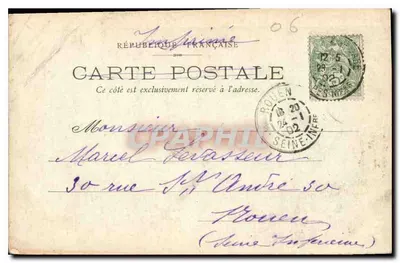 Imprimé
06
RÉPUBLIQUE FRANÇAISE
CARTE POSTALE
Ce côté est exclusivement réservé à l'adresse.
ROUEN
18 20
24 -1
02
SEINE-INFRE
Monsieur
Marcel Levasseur
30 rue St André 30
Rouen
(Seine Inférieure)